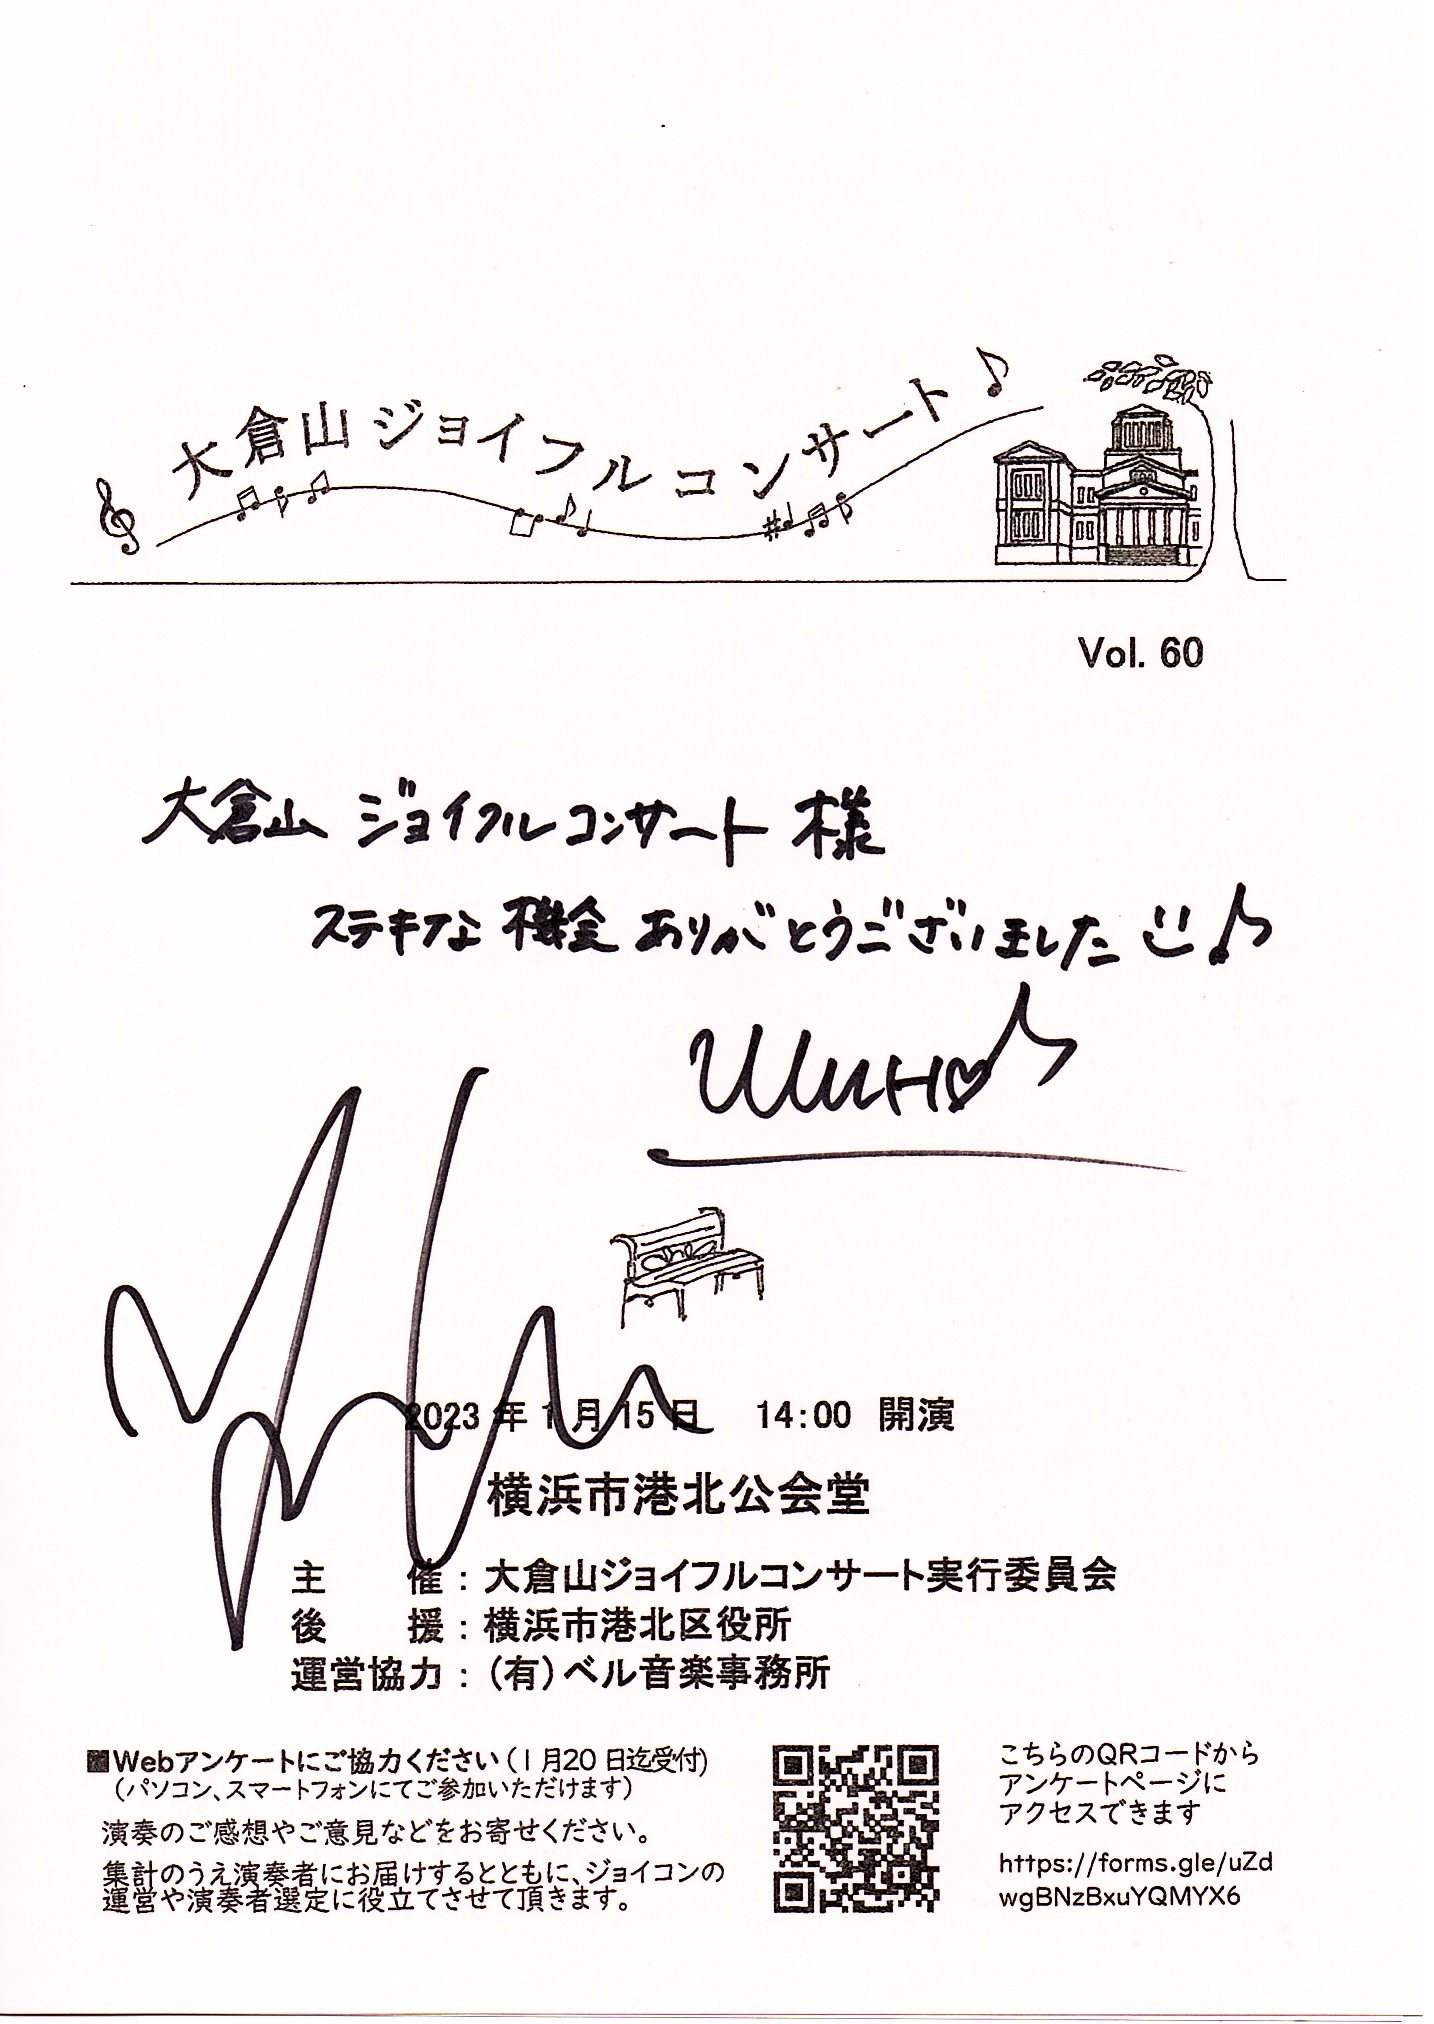 大倉山ジョイフルコンサート
Vol. 60
大倉山 ジョイフルコンサート 様
ステキな 機会 ありがとうございました
2023 年 1 月 15 日 14:00 開演
横浜市港北公会堂
主 催 : 大倉山ジョイフルコンサート実行委員会
後 援 : 横浜市港北区役所
運営協力 : (有)ベル音楽事務所
■Webアンケートにご協力ください(1月20日迄受付)
(パソコン、スマートフォンにてご参加いただけます)
演奏のご感想やご意見などをお寄せください。
集計のうえ演奏者にお届けするとともに、ジョイコンの
運営や演奏者選定に役立てさせて頂きます。
こちらのQRコードから
アンケートページに
アクセスできます
https://forms.gle/uZd
wgBNzBxuYQMYX6